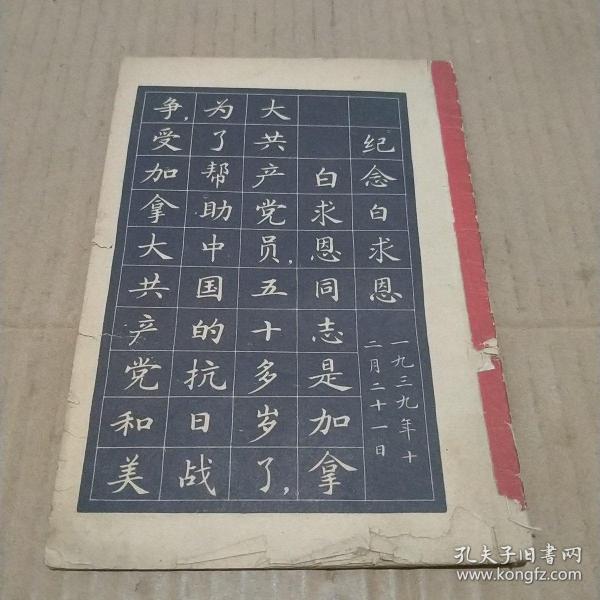 纪念白求恩
一九三九年十
二月二十一日
白求恩同志是加拿
大共产党员，五十多岁了，
为了帮助中国的抗日战
争，受加拿大共产党和美
孔夫子旧书网
www.kongfz.com